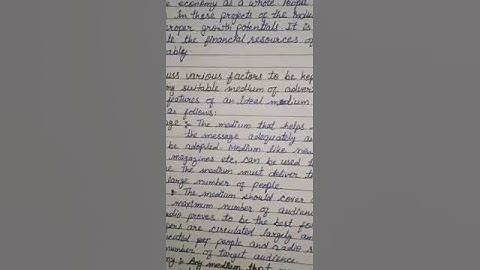 e economy as a whole. People
In these projects of the
proper growth potentials. It is
te the financial resources of
ably.
uss various factors to be kep
ng suitable medium of adver
features of an ideal medium
as follows:
age :- The medium that helps
the message adequately a
be adopted. Medium like new
magazines etc. can be used t
e the medium must deliver t
large number of people.
:- The medium should cover
maximum number of audienc
adio proves to be the best fo
pers are circulated largely am
cated people and radio
number of target audience
ng :- Any medium that